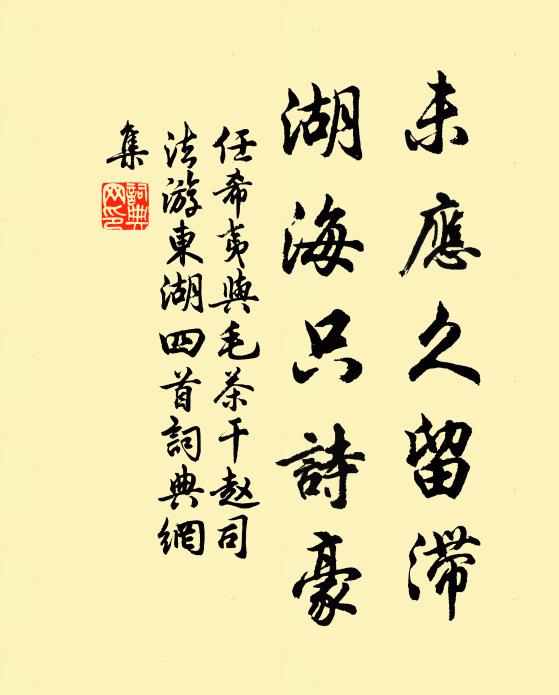 未應久留滯
湖海只詩豪
任希夷與毛茶干赵司
法游東湖四首詞典網
集
詞典
网印